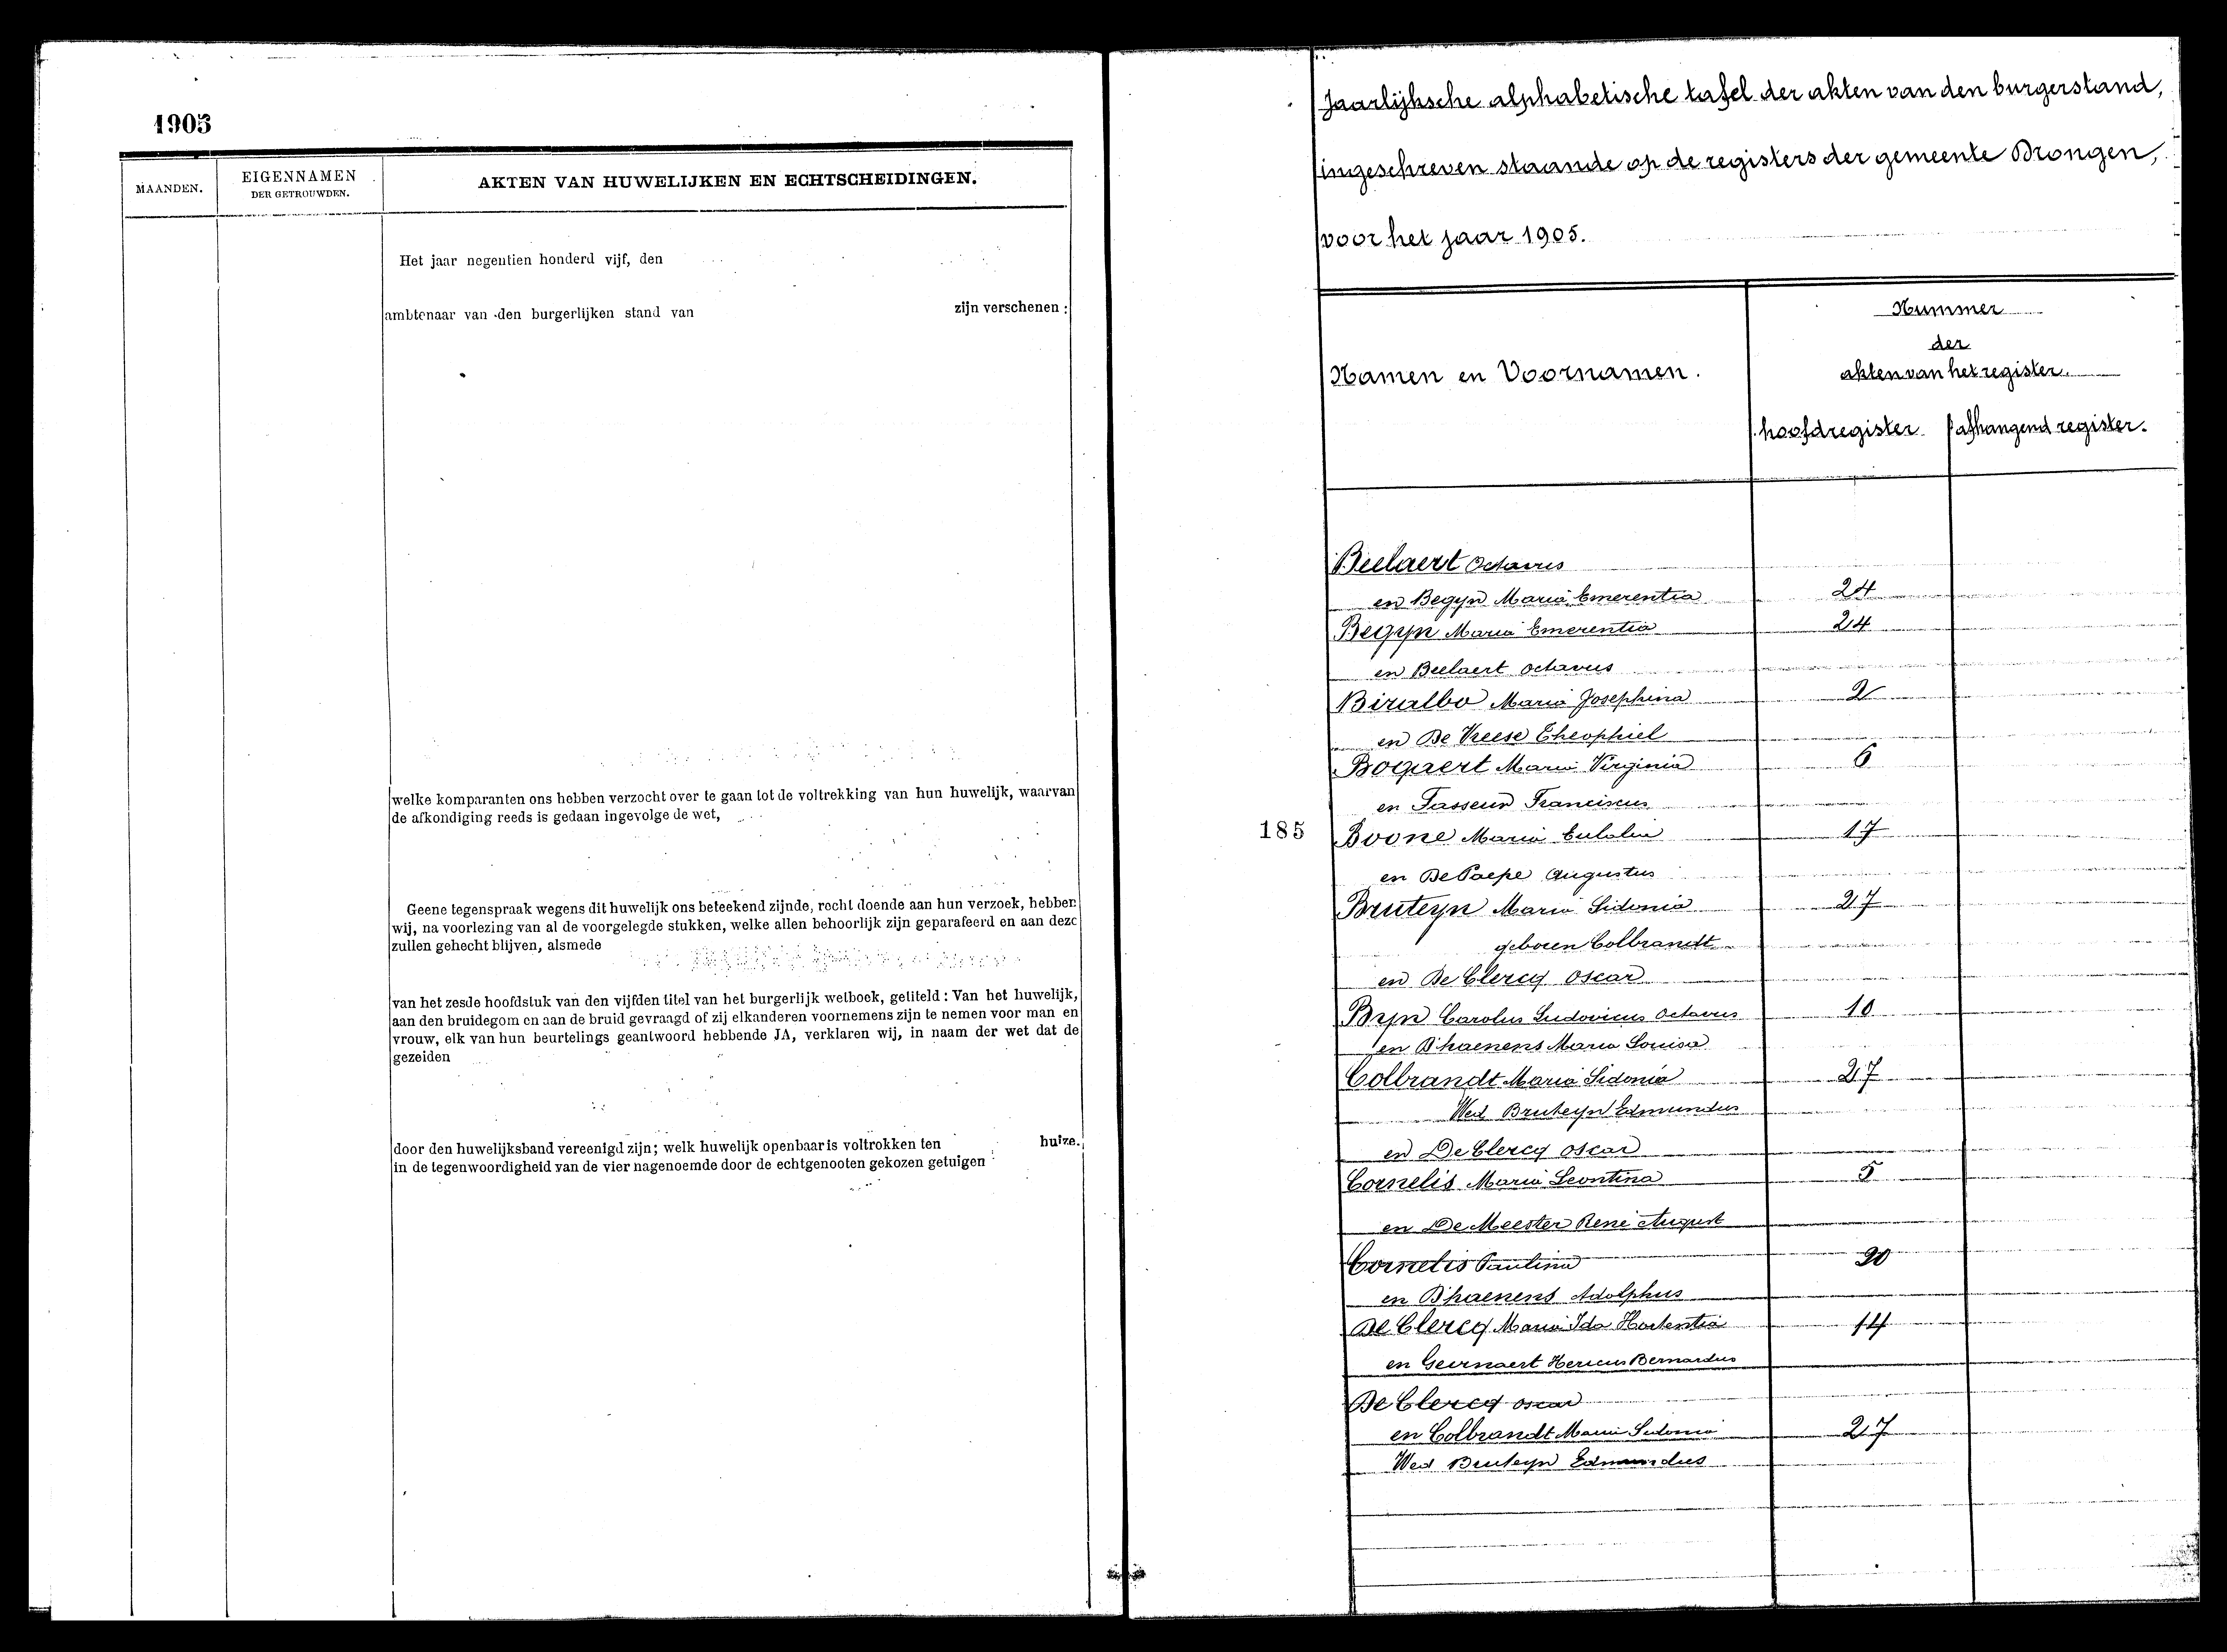 1905
MAANDEN.
EIGENNAMEN
DER GETROUWDEN.
AKTEN VAN HUWELIJKEN EN ECHTSCHEIDINGEN.
Het jaar negentien honderd vijf, den
ambtenaar van den burgerlijken stand van zijn verschenen :
welke komparanten ons hebben verzocht over te gaan tot de voltrekking van hun huwelijk, waarvan
de afkondiging reeds is gedaan ingevolge de wet,
Geene tegenspraak wegens dit huwelijk ons beteekend zijnde, recht doende aan hun verzoek, hebben
wij, na voorlezing van al de voorgelegde stukken, welke allen behoorlijk zijn geparafeerd en aan deze
zullen gehecht blijven, alsmede
van het zesde hoofdstuk van den vijfden titel van het burgerlijk wetboek, getiteld : Van het huwelijk,
aan den bruidegom en aan de bruid gevraagd of zij elkanderen voornemens zijn te nemen voor man en
vrouw, elk van hun beurtelings geantwoord hebbende JA, verklaren wij, in naam der wet dat de
gezeiden
door den huwelijksband vereenigd zijn; welk huwelijk openbaar is voltrokken ten huize.
in de tegenwoordigheid van de vier nagenoemde door de echtgenooten gekozen getuigen
Jaarlijksche alphabetische tafel der akten van den burgerstand,
ingeschreven staande op de registers der gemeente Drongen,
voor het jaar 1905.
Namen en Voornamen.
Nummer
der
akten van het register.
hoofdregister afhangend register.
Beelaert Octavus
en Begyn Maria Emerentia 24
Begyn Maria Emerentia 24
en Beelaert Octavus
Biralbo Maria Josephina 2
en De Vreese Theophiel
Bogaert Maria Virginia 6
en Tasseur Franciscus
185 Boone Maria Eulalia 17
en De Paepe Augustus
Bruteyn Maria Sidonia 27
geboren Colbrandt
en De Clercq Oscar
Byn Carolus Ludovicus Octavus 10
en D'haenens Maria Louisa
Colbrandt Maria Sidonia 27
Wed Bruteyn Edmundus
en De Clercq Oscar
Cornelis Maria Leontina 5
en De Meester René August
Cornelis Paulina 20
en D'haenens Adolphus
De Clercq Maria Ida Hortentia 14
en Geirnaert Hericus Bernardus
De Clercq Oscar
en Colbrandt Maria Sidonia 27
Wed Bruteyn Edmundus